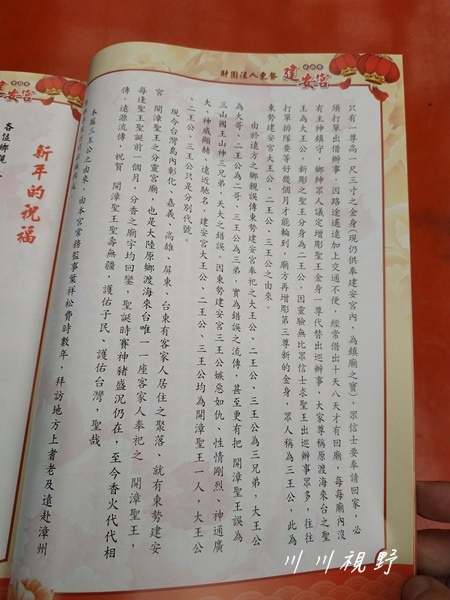 財團法人東勢 建安宮
只有一尊高一尺三寸之金身(現仍供奉建安宮內，為鎮廟之寶)，眾信士要奉請回家，必
須打單出借辦事，因路途遙遠加上交通不便，經常借出十天八天才有回廟，每每廟內沒
有主神鎮守，鄉紳眾人議定增彫聖王金身一尊代替出巡辦事，大家尊稱原渡海來台之聖
王為大王公，新彫之聖王分身為二王公，因靈驗無比眾信士求聖王出巡辦事眾多，往往
打單排隊要等好幾個月才能輪到，廟方再增彫第三尊新的金身，眾人稱為三王公，此為
東勢建安宮大王公、二王公、三王公之由來。
由於遠方之鄉親誤傳東勢建安宮奉祀之大王公、二王公、三王公為三兄弟，大王公
為大哥、二王公為二哥，三王公為三弟，實為錯誤之流傳，甚至更有把 開漳聖王誤為
三山國王山神三兄弟，天大之錯誤。因東勢建安宮三王公嫉惡如仇、性情剛烈、神通廣
大、神威顯赫，遠近馳名，建安宮大王公、二王公、三王公均為開漳聖王一人，大王公
、二王公、三王公只是分別代號。
現今台灣島內彰化、嘉義、高雄、屏東、台東有客家人居住之聚落、就有東勢建安
宮 開漳聖王之分靈宮廟，也是大陸原鄉渡海來台唯一一座客家人奉祀之 開漳聖王，
每逢聖王聖誕前一個月，分香之廟宇均回鑾，聖誕時賽神豬盛況仍在，至今香火代代相
傳，遠源流傳，祝賀 開漳聖王聖壽無疆，護佑子民、護佑台灣，聖哉
本篇三王公之由來，由本宮常務監事葉祥松費時數年，拜訪地方上耆老及遠赴漳州
建安宮
新年的祝福
各位鄉親
川川視野